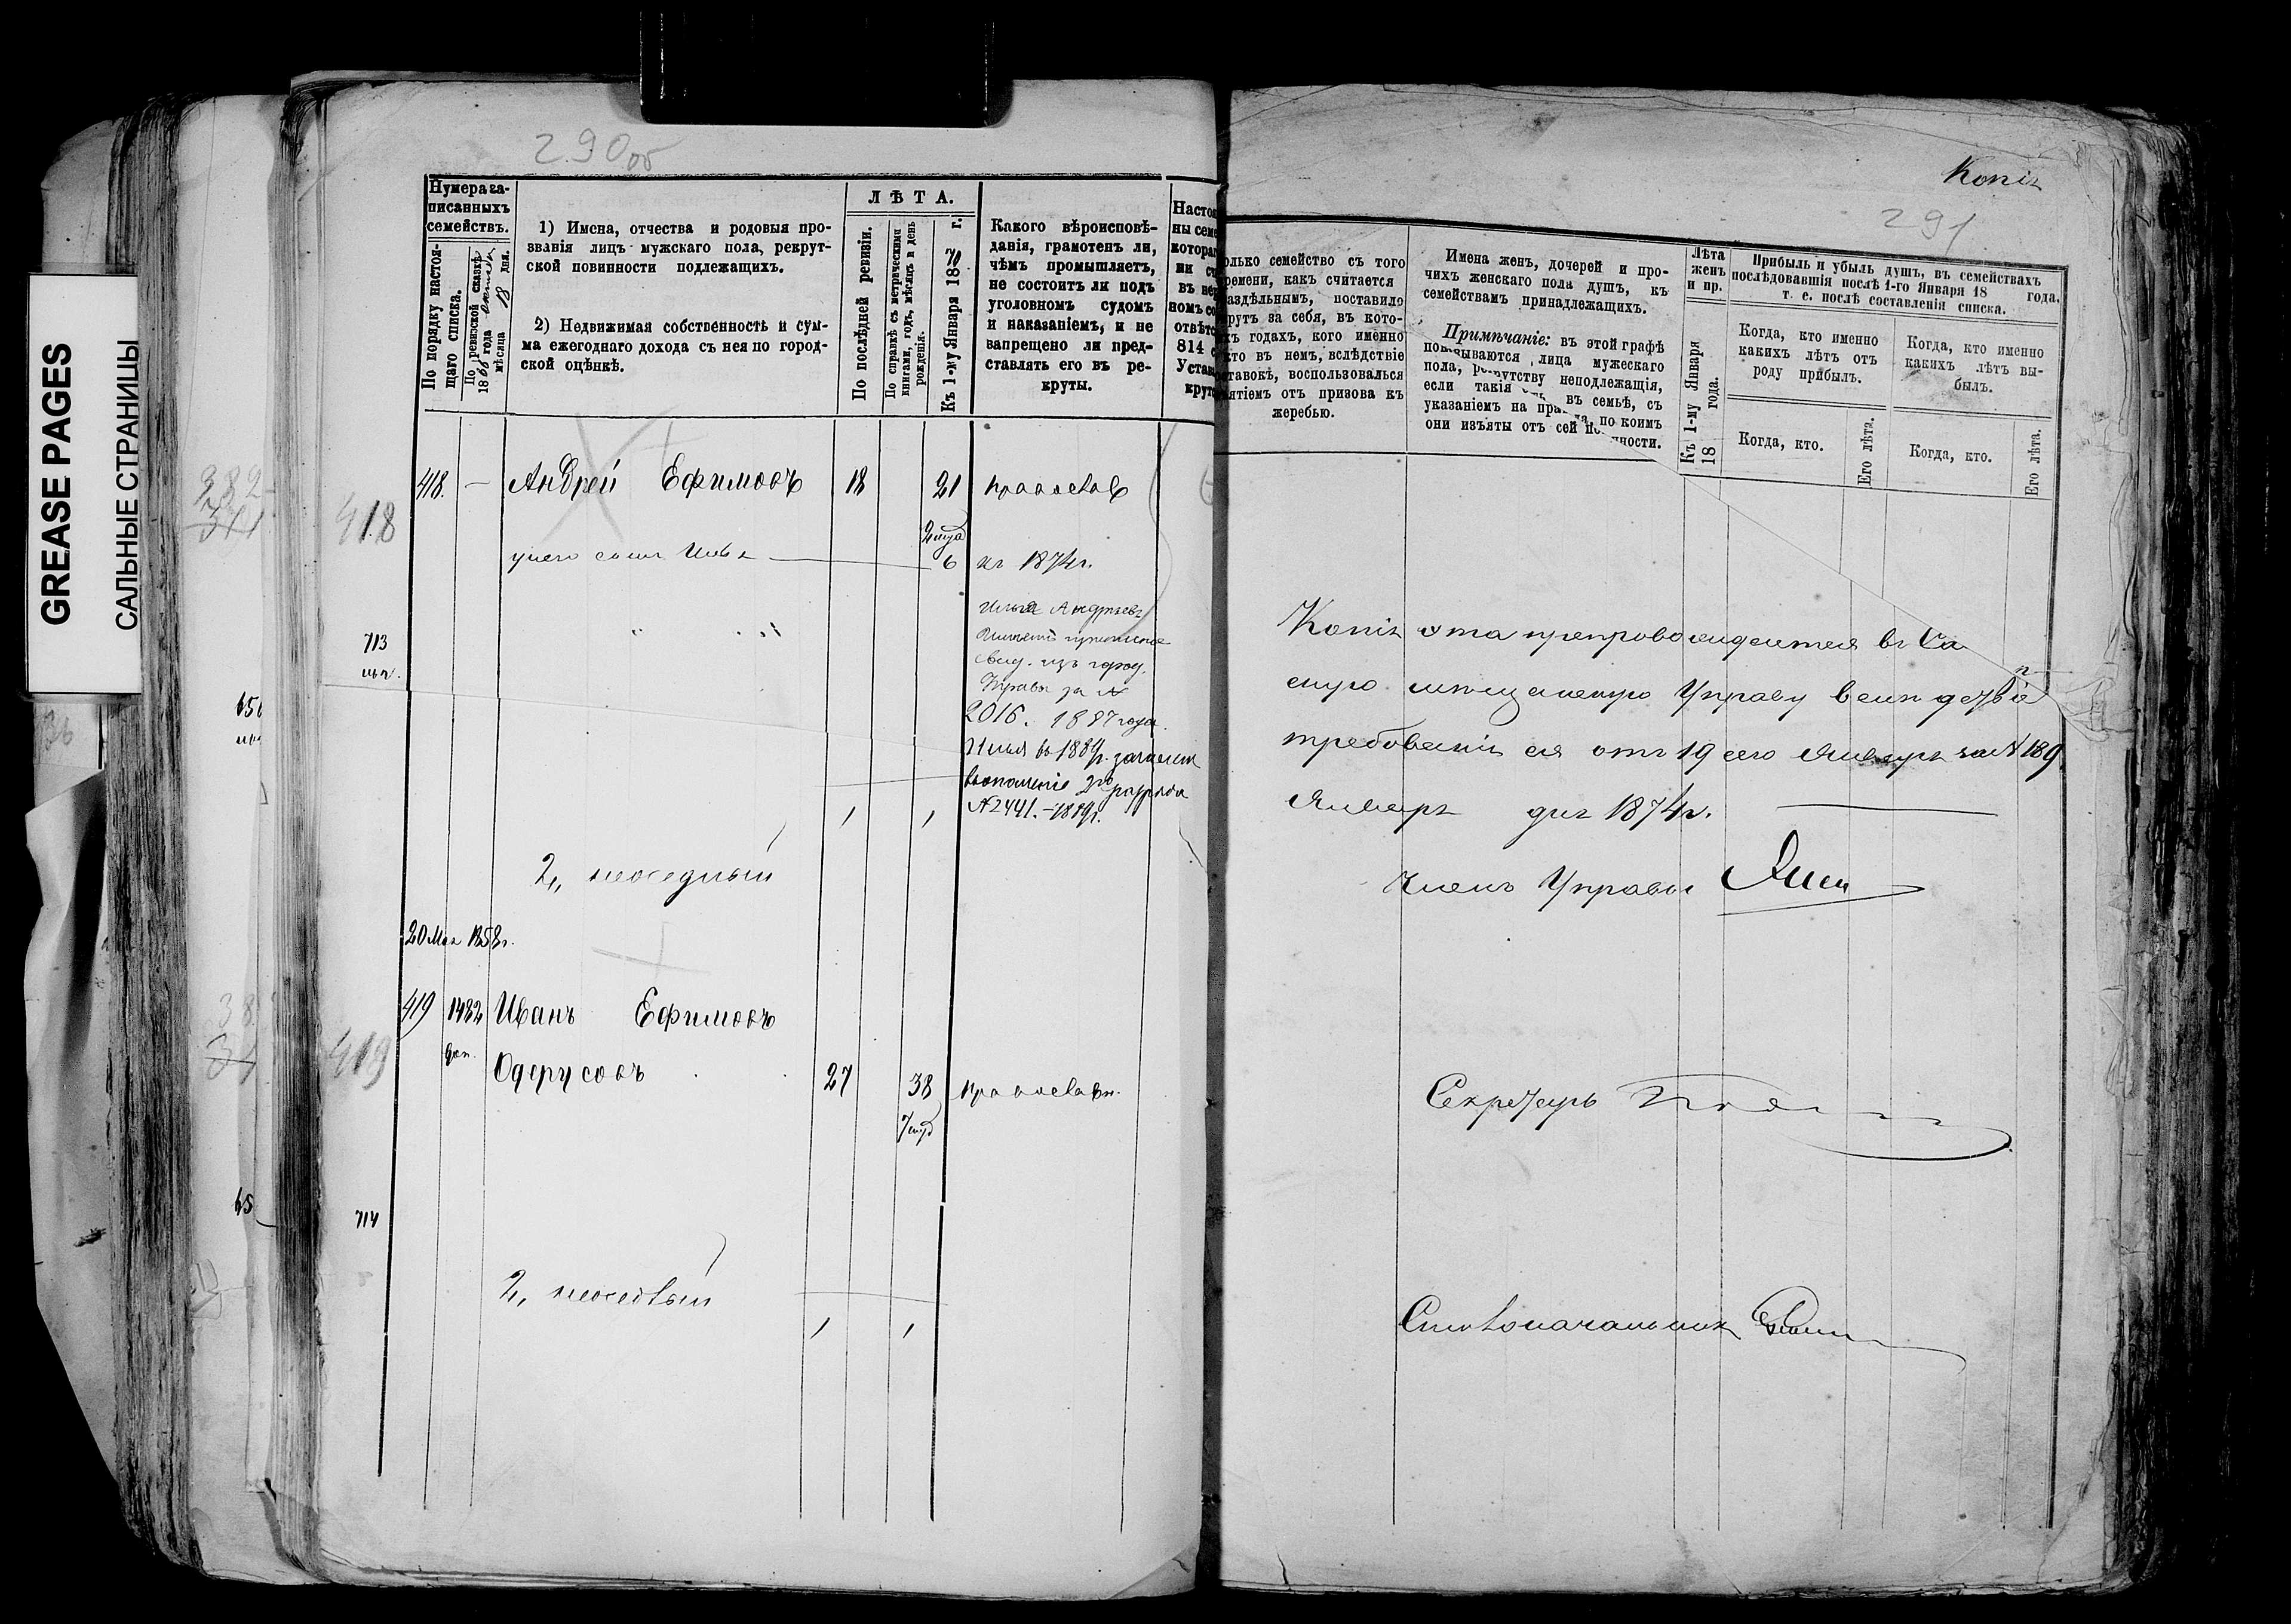 GREASE PAGES
САЛЬНЫЕ СТРАНИЦЫ
290об
Нумера за-
писанныхъ
семействъ.
По порядку настоя-
щаго списка.
По ревизской сказкѣ
18 года
мѣсяца 18 дня.
1) Имена, отчества и родовыя про-
званія лицъ мужскаго пола, рекрут-
ской повинности подлежащихъ.
2) Недвижимая собственность и сум-
ма ежегоднаго дохода съ нея по город-
ской оцѣнкѣ.
ЛѢТА.
По послѣдней ревизіи.
По справкѣ съ метрическими
книгами, годъ, мѣсяцъ и день
рожденія.
Къ 1-му Января 1870 г.
Какого вѣроисповѣ-
данія, грамотенъ ли,
чѣмъ промышляетъ,
не состоитъ ли подъ
уголовномъ судомъ
и наказаніемъ, и не
запрещено ли пред-
ставлять его въ ре-
круты.
418. — Андрей Ефимовъ 18 21 православ
418
у него сынъ Илья 6 къ 1874г.
713
Илья Андреевъ
свид. изъ город.
Управы за №
2016. 1887 года.
Илья въ 1889г. зачислен
въ ополченіе 2го разряда
№2441.-1889г.
1 1
2,, неосѣдлый
20 Мая 1858г.
419 1482 Иванъ Ефимовъ
доп. Одерусовъ 27 38 православн.
419
714
2, неосѣдлый
1 1
Копія
291
олько семейство съ того
ремени, какъ считается
аздѣльнымъ, поставило
рутъ за себя, въ кото-
хъ годахъ, кого именно
кто въ немъ, вслѣдствіе
ставокъ, воспользовался
ятіемъ отъ призова къ
жеребью.
Имена женъ, дочерей и про-
чихъ женскаго пола душъ, къ
семействамъ принадлежащихъ.
Примѣчаніе: въ этой графѣ
показываются лица мужескаго
пола, рекрутству неподлежащія,
если такія есть въ семьѣ, съ
указаніемъ на права, по коимъ
они изъяты отъ сей повинности.
Лѣта
женъ
и пр.
Къ 1-му Января
18 года.
Прибыль и убыль душъ, въ семействахъ
послѣдовавшія послѣ 1-го Января 18 года,
т. е. послѣ составленія списка.
Когда, кто именно
какихъ лѣтъ отъ
роду прибылъ.
Когда, кто именно
какихъ лѣтъ вы-
былъ.
Когда, кто.
Его лѣта.
Когда, кто.
Его лѣта.
Копія эта препровождается въ
мѣщанскую Управу вслѣдствіе
требованія ея отъ 19 сего Января за № 189
Января дня 1874г.
Членъ Управы
Секретарь
Столоначальникъ